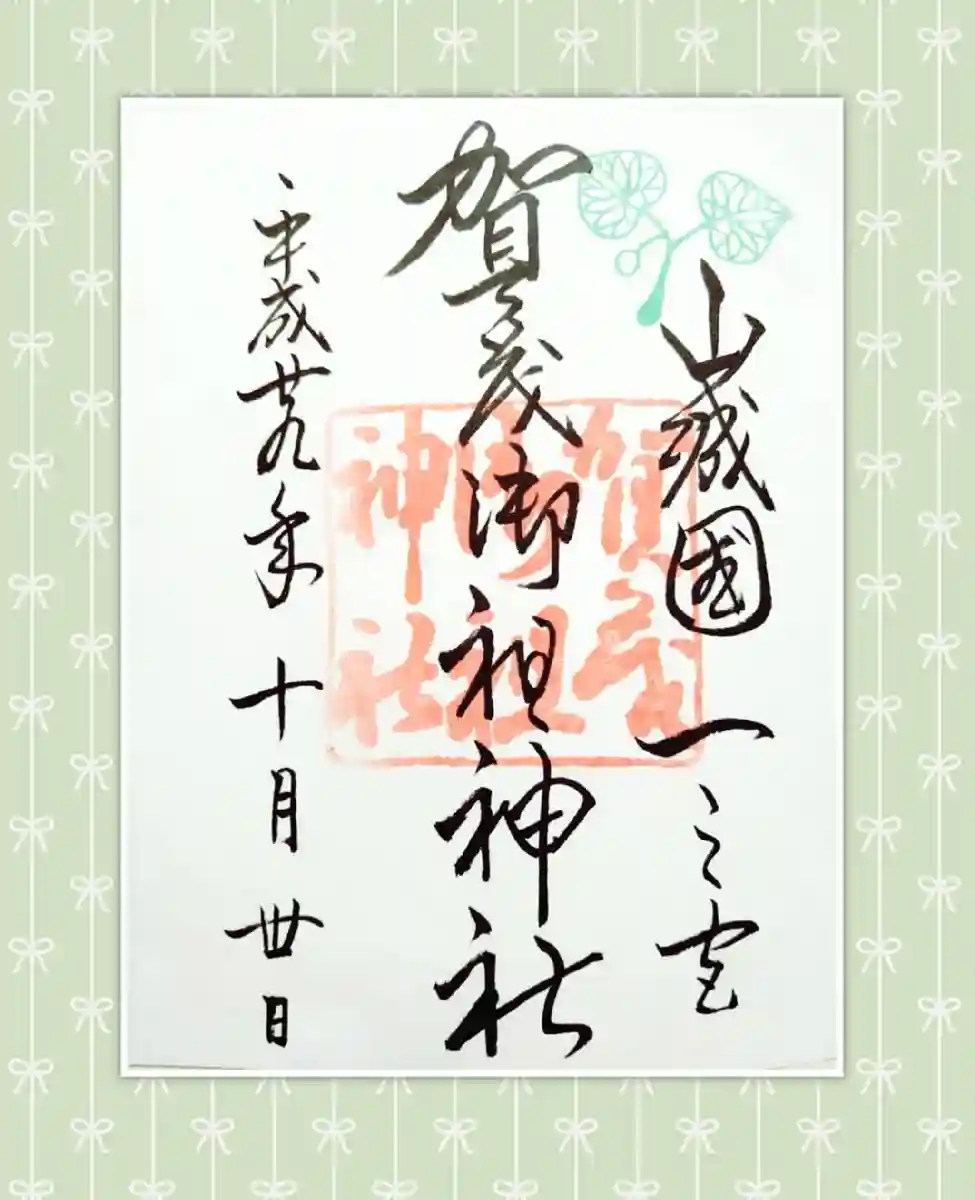 山城國一之宮
賀茂御祖神社
平成廿九年十月卅日
賀茂
御祖
神社